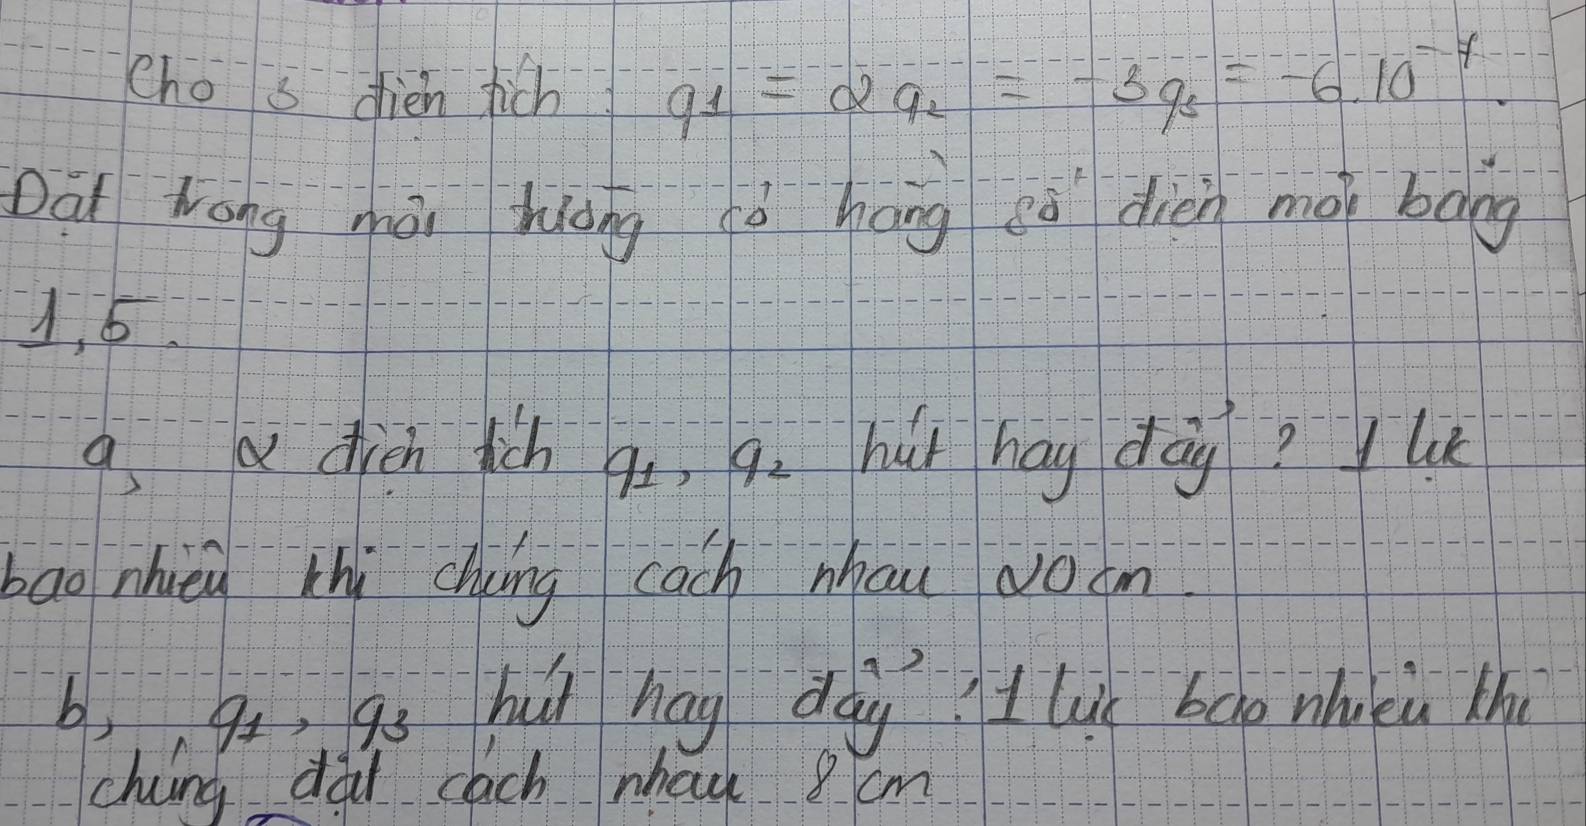 Cho 3 điện tích : q1 = 2q2 = -3q3 = -6.10⁻⁷.
Đặt trong môi trường có hằng số điện môi bằng
1,5.
a, 2 điện tích q1, q2 hút hay đẩy ? 1 lực
bao nhiêu khi chúng cách nhau 20cm.
b, q1, q3 hút hay đẩy ? 1 lực bao nhiêu khi
chúng đặt cách nhau 8 cm